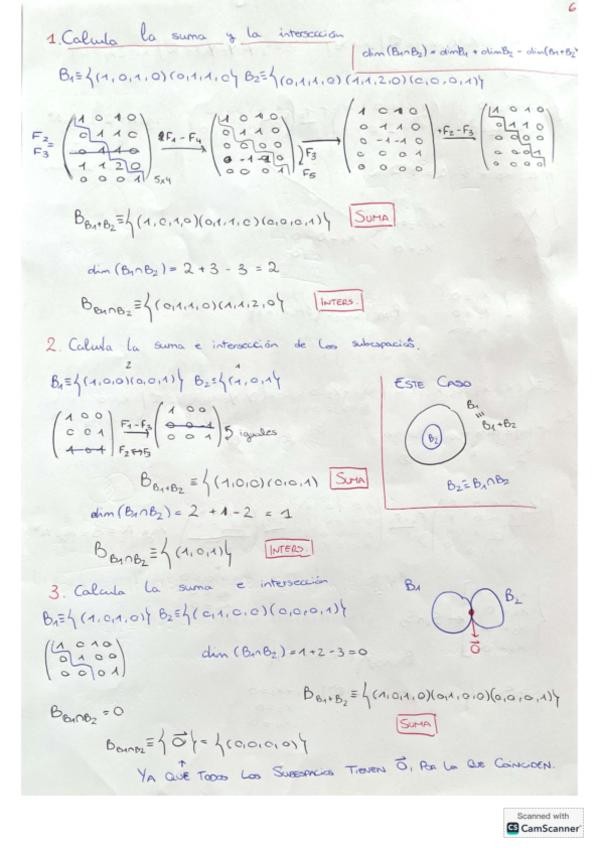 6
1. Calcula la suma y la intersección
dim (B1∩B2) = dim B1 + dim B2 - dim (B1+B2)
B1≡{(1,0,1,0)(0,1,1,0} B2≡{(0,1,1,0)(1,1,2,0)(0,0,0,1)}
F2 = F3
1 0 1 0
0 1 1 0
0 1 1 0
1 1 2 0
0 0 0 1
5x4
F1-F4
1 0 1 0
0 1 1 0
0 0 0 0
0 -1 -1 0
0 0 0 1
F3
F5
1 0 1 0
0 1 1 0
0 -1 -1 0
0 0 0 1
0 0 0 0
+F2-F3
1 0 1 0
0 1 1 0
0 0 0 0
0 0 0 1
0 0 0 0
B B1+B2 ≡{(1,0,1,0)(0,1,1,0)(0,0,0,1)} SUMA
dim (B1∩B2) = 2 + 3 - 3 = 2
B B1∩B2 ≡{(0,1,1,0)(1,1,2,0} INTERS.
2. Calcula la suma e intersección de los subespacios.
2 1
B1≡{(1,0,0)(0,0,1)} B2≡{(1,0,1)}
1 0 0
0 0 1
1 0 1
F1-F3
F2↔5
1 0 0
0 0 1
0 0 1
5 iguales
ESTE CASO
B1
≡
B1+B2
B2
B2≡B1∩B2
B B1+B2 ≡{(1,0,0)(0,0,1) SUMA
dim (B1∩B2) = 2 + 1 - 2 = 1
B B1∩B2 ≡{(1,0,1)} INTERS.
3. Calcula la suma e intersección
B1≡{(1,0,1,0)} B2≡{(0,1,0,0)(0,0,0,1)}
B1 B2
0⃗
1 0 1 0
0 1 0 0
0 0 0 1
dim (B1∩B2) = 1+2-3=0
B B1+B2 ≡{(1,0,1,0)(0,1,0,0)(0,0,0,1)}
SUMA
B B1∩B2 = 0
B B1∩B2 ≡{0⃗} = {(0,0,0,0)}
YA QUE TODOS LOS SUBESPACIOS TIENEN 0⃗, POR LA QUE COINCIDEN.
Scanned with
CS CamScanner